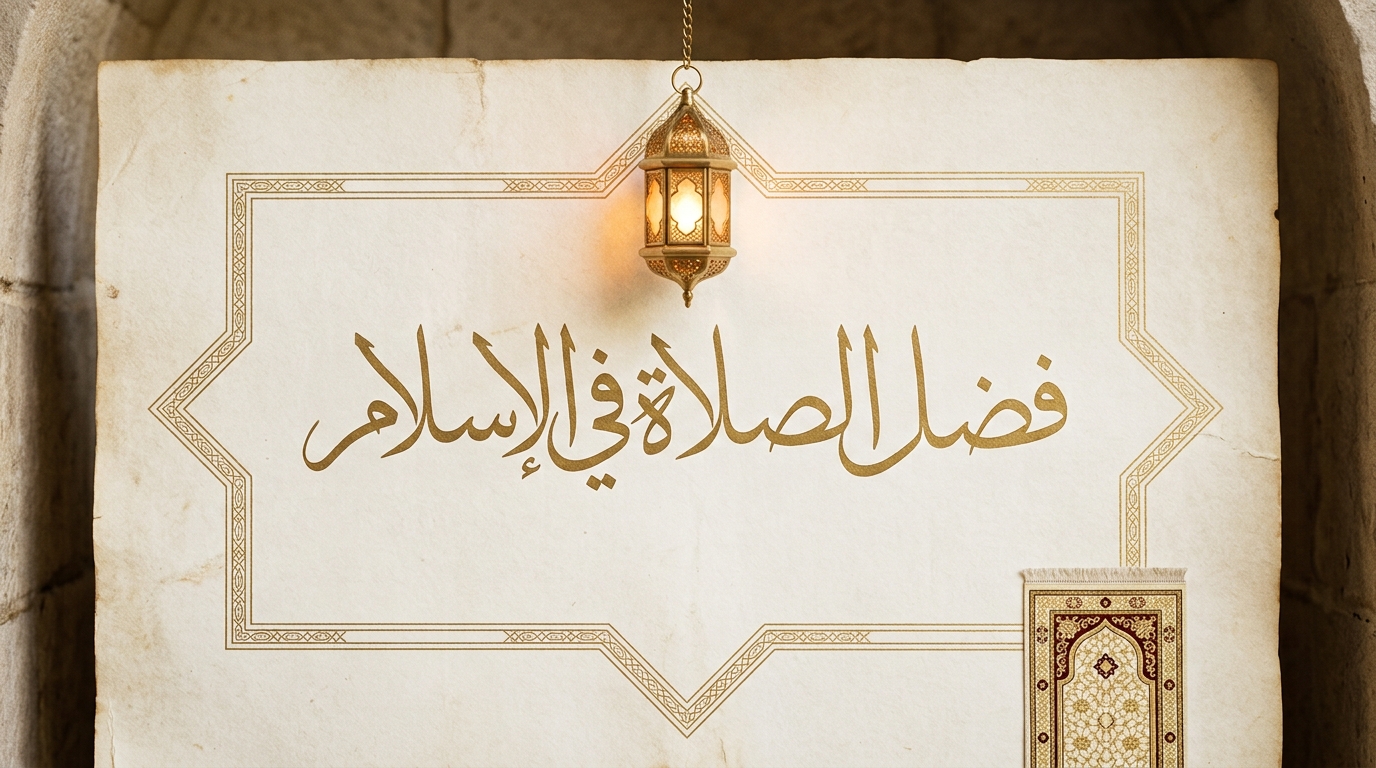 فضل الصلاة في الإسلام